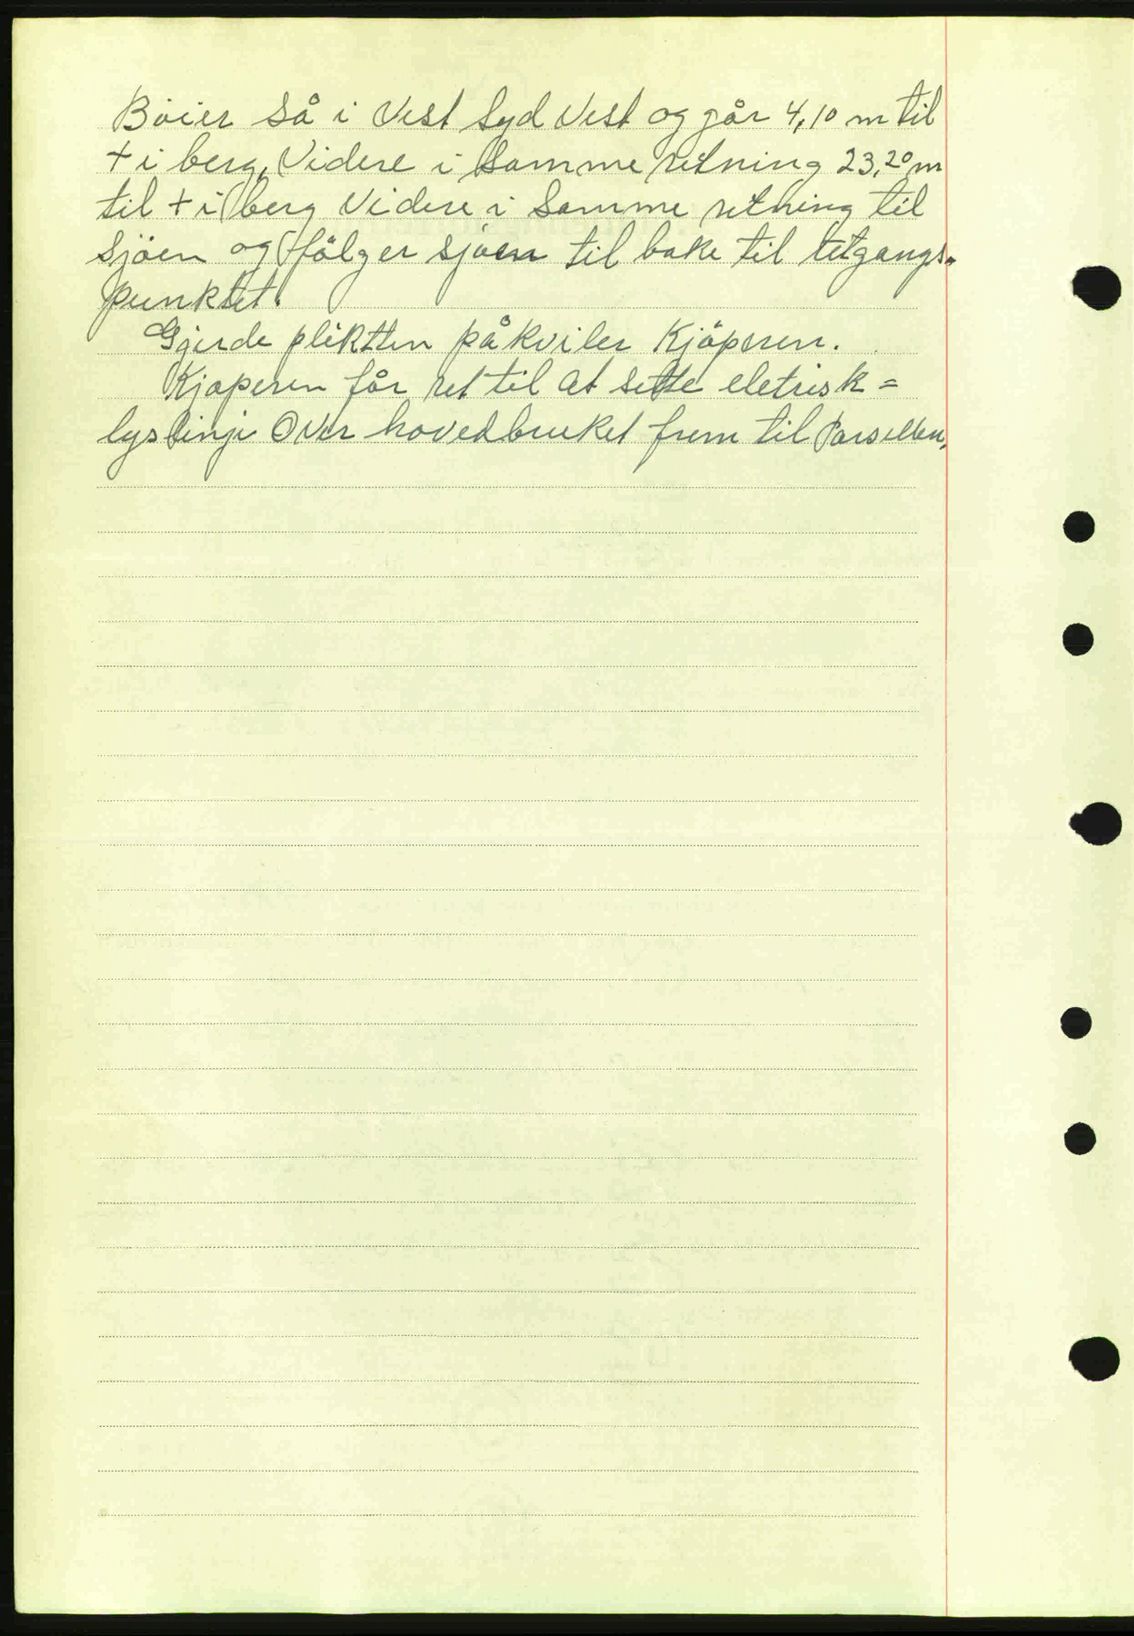 Böier så i Vest Syd Vest og går 4,10 m til
+ i berg, Videre i Samme retning 23,20 m
til + i berg Videre i Samme retning til
Sjöen og fölger sjöen til bake til utgangs-
punktet.
Gjerde plikten påkviler Kjöperen.
Kjöperen får ret til at sette eletrisk =
lyslinje Over hovedbruket frem til Parsellen,